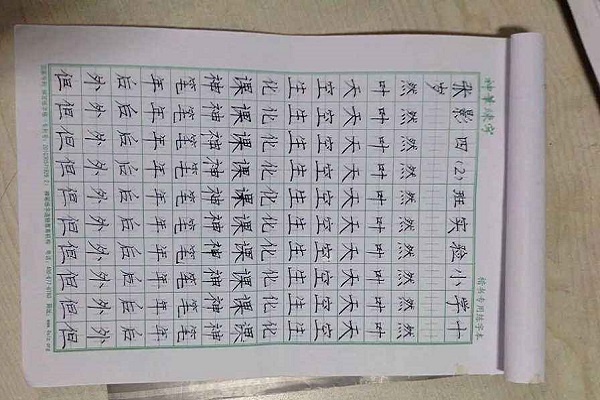 神笔练字
楷书专用练字本
宋影四(2)班实验小学十岁
然然然然然然然然然然
叶叶叶叶叶叶叶叶叶叶
天天天天天天天天天天
空空空空空空空空空空
生生生生生生生生生生
化化化化化化化化化化
课课课课课课课课课课
神神神神神神神神神神
笔笔笔笔笔笔笔笔笔笔
年年年年年年年年年年
后后后后后后后后后后
外外外外外外外外外外
但但但但但但但但但但